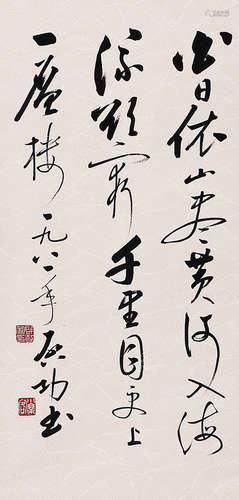 白日依山尽黄河入海
流欲穷千里目更上
一层楼 一九八二年 启功书